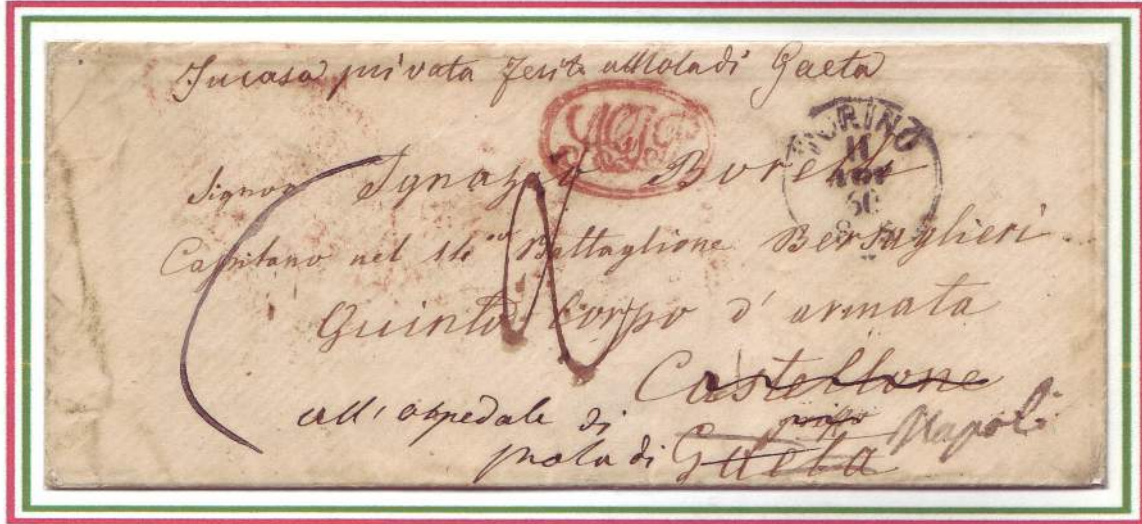 In casa privata ferito a Mola di Gaeta
TORINO
11
60
Signor Ignazio Borelli
Capitano nel 14º Battaglione Bersaglieri
Quinto Corpo d'armata
Castellone
all'ospedale di
presso Napoli
mola di Gaeta